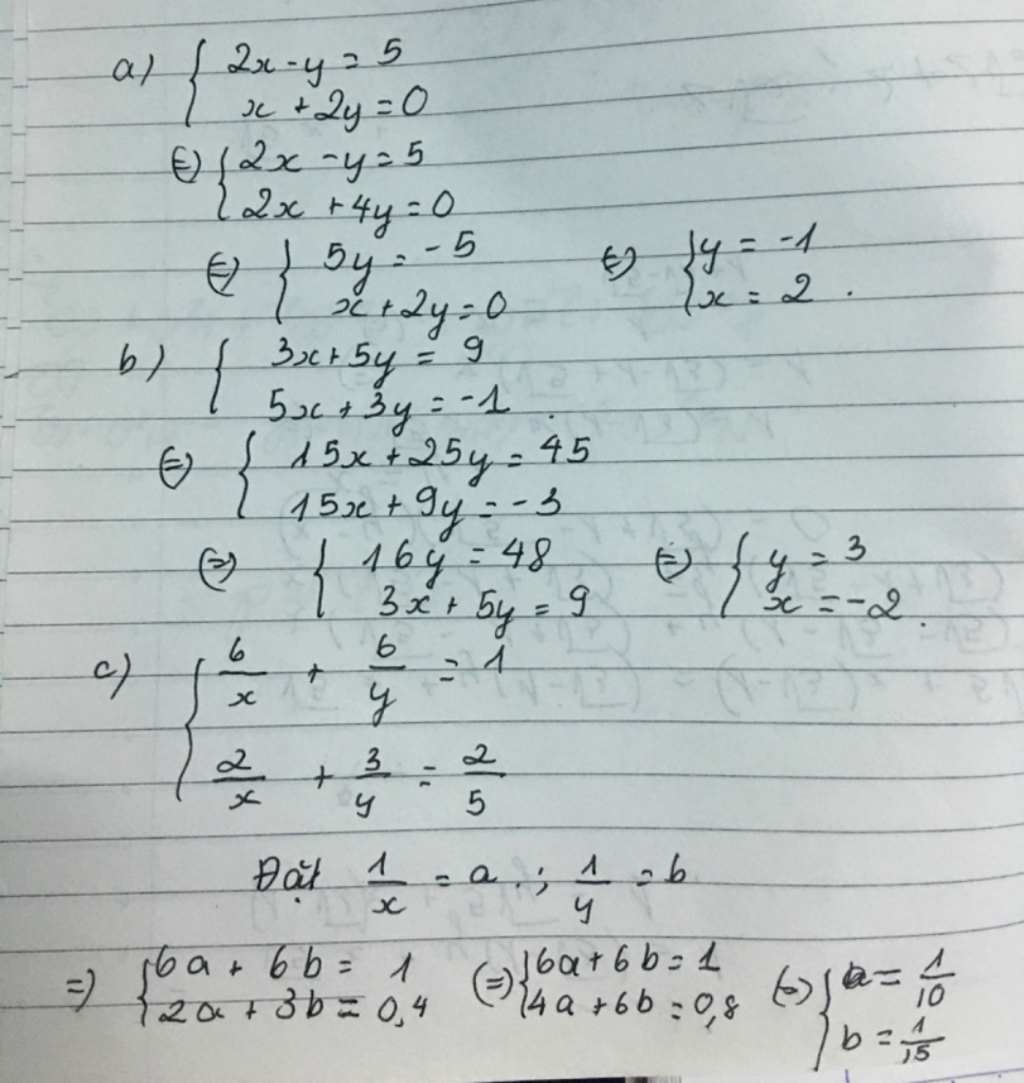 a) { 2x - y = 5
x + 2y = 0
⇔ { 2x - y = 5
2x + 4y = 0
⇔ { 5y = -5 ⇔ { y = -1
x + 2y = 0 x = 2 .
b) { 3x + 5y = 9
5x + 3y = -1 .
⇔ { 15x + 25y = 45
15x + 9y = -3
⇔ { 16y = 48 ⇔ { y = 3
3x + 5y = 9 x = -2 .
c) { 6/x + 6/y = 1
2/x + 3/y = 2/5
Đặt 1/x = a ; 1/y = b
=> { 6a + 6b = 1 ⇔ { 6a + 6b = 1 ⇔ { a = 1/10
2a + 3b = 0,4 4a + 6b = 0,8 b = 1/15